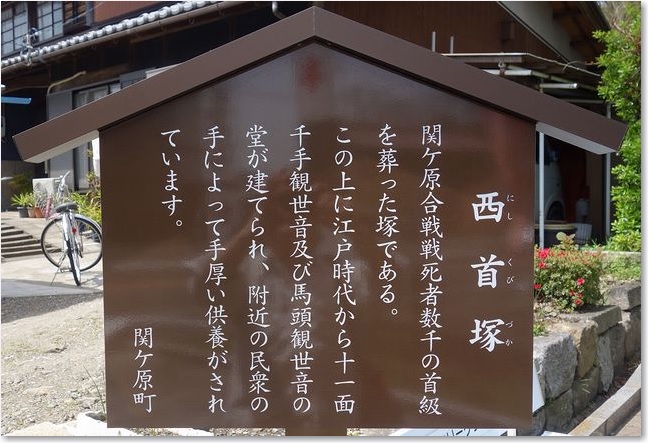 西首塚
にし くび づか
関ケ原合戦戦死者数千の首級
を葬った塚である。
この上に江戸時代から十一面
千手観世音及び馬頭観世音の
堂が建てられ、附近の民衆の
手によって手厚い供養がされ
ています。
関ケ原町